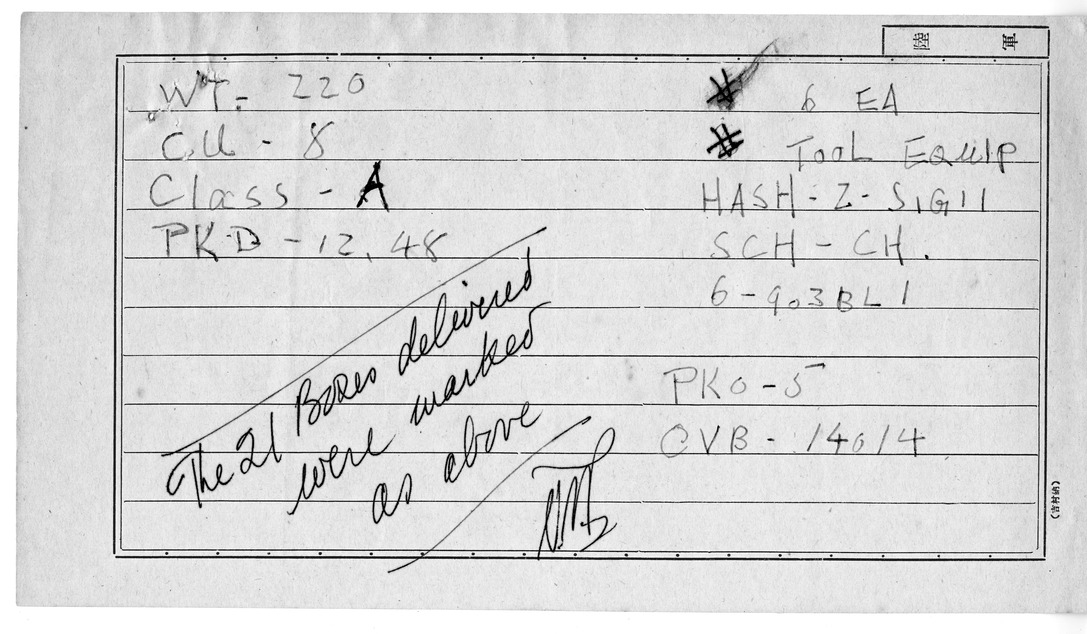 陸軍
WT- 220
CU - 8
Class - A
PKD - 12.48
# 6 EA
# TOOL EQUIP
HASH - Z - SIG 11
SCH - CH.
6 - 903BL1
PKO - 5
CVB - 14014
The 21 Boxes delivered
were marked
as above
(吉村納)